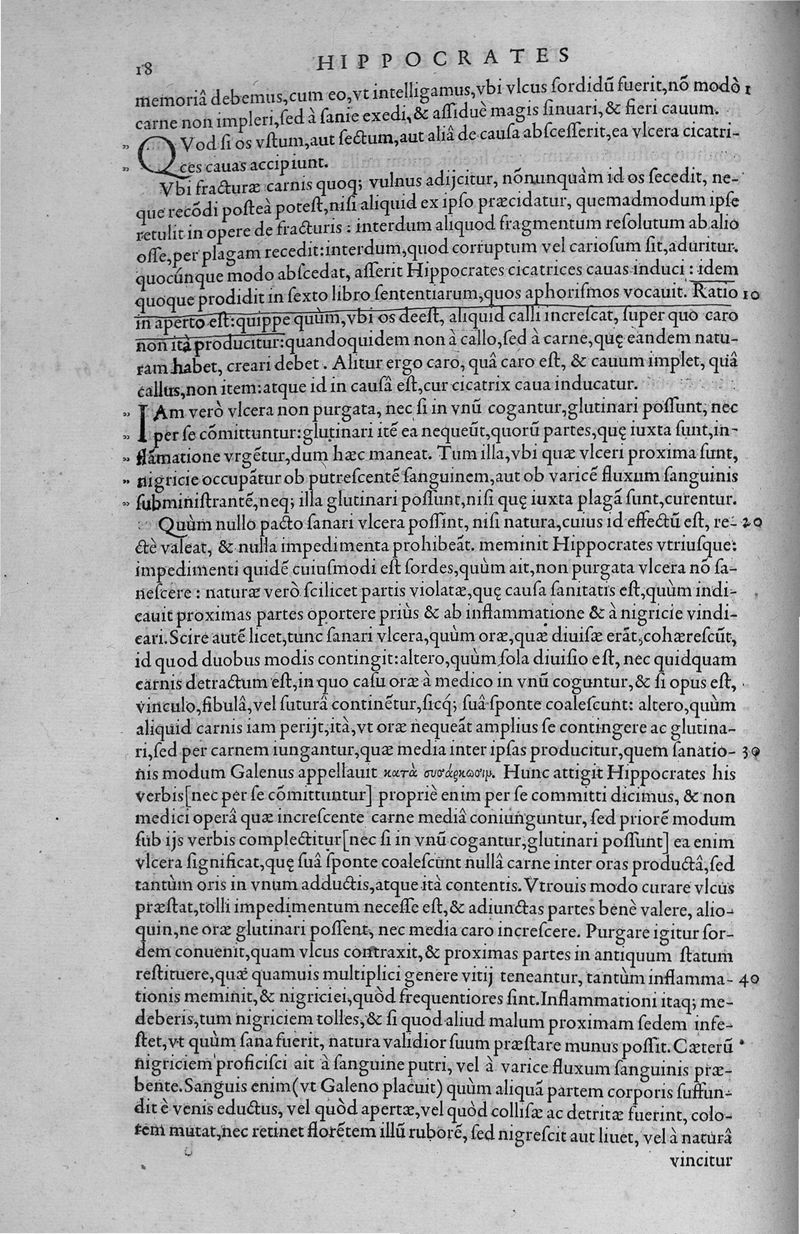 18 HIPPOCRATES
memoriâ debemus,cum eo,vt intelligamus,vbi vlcus ſordidũ fuerit,nõ modò 1
carne non impleri,ſed à ſanie exedi,& aſſiduè magis ſinuari,& fieri cauum.
„ QVod ſi os vſtum,aut ſectum,aut aliâ de cauſa abſceſſerit,ea vlcera cicatri-
„ ces cauas accipiunt.
Vbi fracturæ carnis quoq; vulnus adijcitur, nõnunquàm id os ſecedit, ne-
que recõdi poſteà poteſt,niſi aliquid ex ipſo præcidatur, quemadmodum ipſe
retulit in opere de fracturis : interdum aliquod fragmentum reſolutum ab alio
oſſe,per plagam recedit:interdum,quod corruptum vel carioſum ſit,aduritur.
quocúnque modo abſcedat, aſſerit Hippocrates cicatrices cauas induci : idem
quoque prodidit in ſexto libro ſententiarum,quos aphoriſmos vocauit. Ratio 10
in aperto eſt:quippe quùm,vbi os deeſt, aliquid calli increſcat, ſuper quo caro
non ità producitur:quandoquidem non à callo,ſed à carne,quę eandem natu-
ram habet, creari debet . Alitur ergo caro, quâ caro eſt, & cauum implet, quâ
callus,non item:atque id in cauſâ eſt,cur cicatrix caua inducatur.
„ IAm verò vlcera non purgata, nec ſi in vnũ cogantur,glutinari poſſunt, nec
„ per ſe cõmittuntur:glutinari itẽ ea nequeũt,quorũ partes,quę iuxta ſunt,in-
„ flãmatione vrgẽtur,dum hæc maneat. Tum illa,vbi quæ vlceri proxima ſunt,
„ nigricie occupãtur ob putreſcentẽ ſanguinem,aut ob varicẽ fluxum ſanguinis
„ ſubminiſtrantẽ,neq; illa glutinari poſſunt,niſi quę iuxta plagã ſunt,curentur.
Quùm nullo pacto ſanari vlcera poſſint, niſi natura,cuius id effectũ eſt, re- 20
ctè valeat, & nulla impedimenta prohibeãt. meminit Hippocrates vtriuſque:
impedimenti quidẽ cuiuſmodi eſt ſordes,quùm ait,non purgata vlcera nõ ſa-
neſcere : naturæ verò ſcilicet partis violatæ,quę cauſa ſanitatis eſt,quùm indi-
cauit proximas partes oportere priùs & ab inflammatione & à nigricie vindi-
cari.Scire autẽ licet,tunc ſanari vlcera,quùm oræ,quæ diuiſæ erãt,cohæreſcũt,
id quod duobus modis contingit:altero,quùm ſola diuiſio eſt, nec quidquam
carnis detractum eſt,in quo caſu oræ à medico in vnũ coguntur,& ſi opus eſt,
vinculo,fibulâ,vel ſuturâ continẽtur,ſicq́; ſuâ ſponte coaleſcunt: altero,quùm
aliquid carnis iam perijt,ità,vt oræ nequeãt amplius ſe contingere ac glutina-
ri,ſed per carnem iungantur,quæ media inter ipſas producitur,quem ſanatio- 30
nis modum Galenus appellauit κατὰ συσάρκωσιμ. Hunc attigit Hippocrates his
verbis[nec per ſe cõmittuntur] propriè enim per ſe committi dicimus, & non
medici operâ quæ increſcente carne mediâ coniunguntur, ſed priorẽ modum
ſub ijs verbis complectitur[nec ſi in vnũ cogantur,glutinari poſſunt] ea enim
vlcera ſignificat,quę ſuâ ſponte coaleſcunt nullâ carne inter oras productâ,ſed
tantùm oris in vnum adductis,atque ità contentis.Vtrouis modo curare vlcus
præſtat,tolli impedimentum neceſſe eſt,& adiunctas partes benè valere, alio-
quin,ne oræ glutinari poſſent, nec media caro increſcere. Purgare igitur ſor-
dem conuenit,quam vlcus contraxit,& proximas partes in antiquum ſtatum
reſtituere,quæ quamuis multiplici genere vitij teneantur, tantùm inflamma- 40
tionis meminit,& nigriciei,quòd frequentiores ſint.Inflammationi itaq; me-
deberis,tum nigriciem tolles,& ſi quod aliud malum proximam ſedem infe-
ſtet,vt quùm ſana fuerit, natura validior ſuum præſtare munus poſſit. Cæterũ
nigriciem proficiſci ait à ſanguine putri, vel à varice fluxum ſanguinis præ-
bente.Sanguis enim(vt Galeno placuit) quùm aliquã partem corporis ſuffun-
dit è venis eductus, vel quòd apertæ,vel quòd colliſæ ac detritæ fuerint, colo-
rem mutat,nec retinet florẽtem illũ ruborẽ, ſed nigreſcit aut liuet, vel à naturâ
vincitur